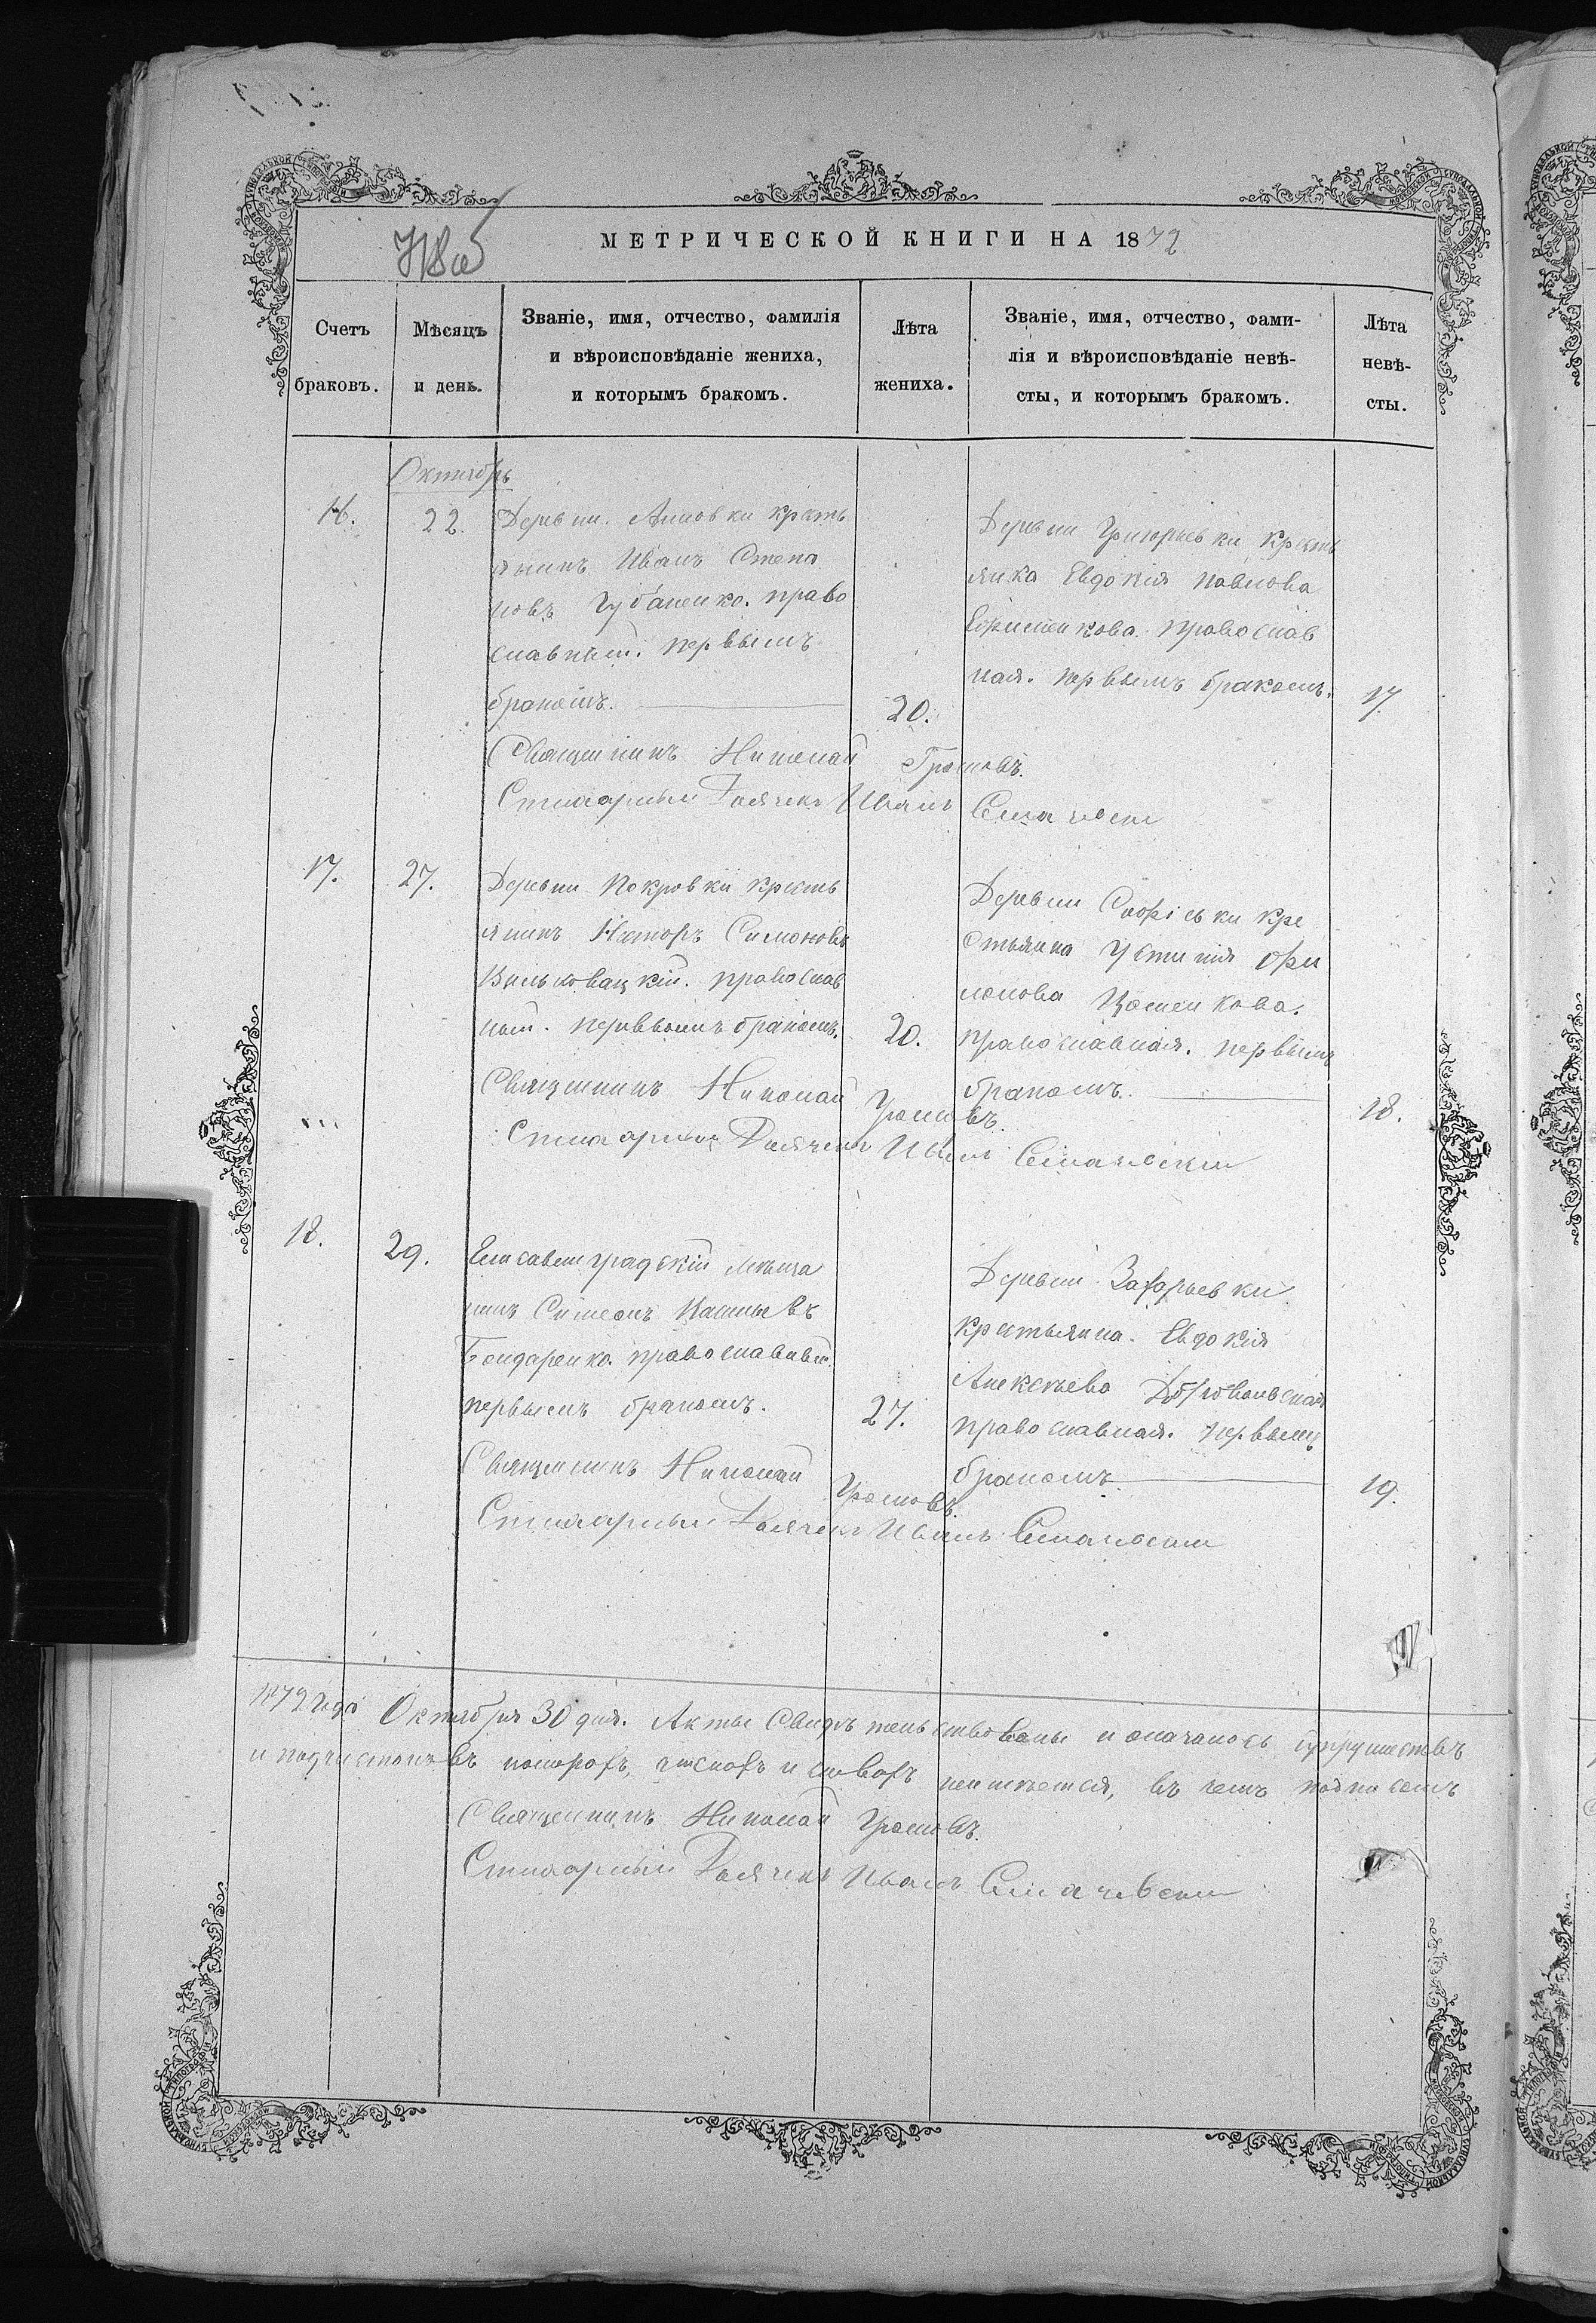 МЕТРИЧЕСКОЙ КНИГИ НА 1872
Счетъ
браковъ.
Мѣсяцъ
и день.
Званіе, имя, отчество, фамилія
и вѣроисповѣданіе жениха,
и которымъ бракомъ.
Лѣта
жениха.
Званіе, имя, отчество, фами-
лія и вѣроисповѣданіе невѣ-
сты, и которымъ бракомъ.
Лѣта
невѣ-
сты.
Октябрь
16.
22.
Деревни Анновки кресть
янинъ Иванъ Степа
новъ Губаненко. право
славный. первымъ
бракомъ.
20.
Деревни Григорьевки кресть
янка Евдокія Павлова
Ефименкова. православ
ная. первымъ бракомъ.
17.
Священникъ Николай Громовъ.
Стихарный Дьячекъ Иванъ
17.
27.
Деревни Покровки кресть
янинъ Симоновъ
православ
ный. первымъ бракомъ.
20.
Деревни Софіевки кре
стьянка Устинія Фи
монова
православная. первымъ
бракомъ.
18.
Священникъ Николай Громовъ.
Стихарный Дьячекъ Иванъ
18.
29.
Елисаветградскій мѣща
нинъ Симеонъ
Бондаренко. православный.
первымъ бракомъ.
27.
Деревни Захарьевки
крестьянка. Евдокія
Алексѣева Добровольская
православная. первымъ
бракомъ
19.
Священникъ Николай Громовъ.
Стихарный Дьячекъ Иванъ
1872 года Октября 30 дня. Акты Свидѣтельствованы и оказалось супружествъ
и подчистокъ въ которыхъ, числахъ и словахъ неимѣется, въ чемъ подписомъ
Священникъ Николай Громовъ.
Стихарный Дьячекъ Иванъ